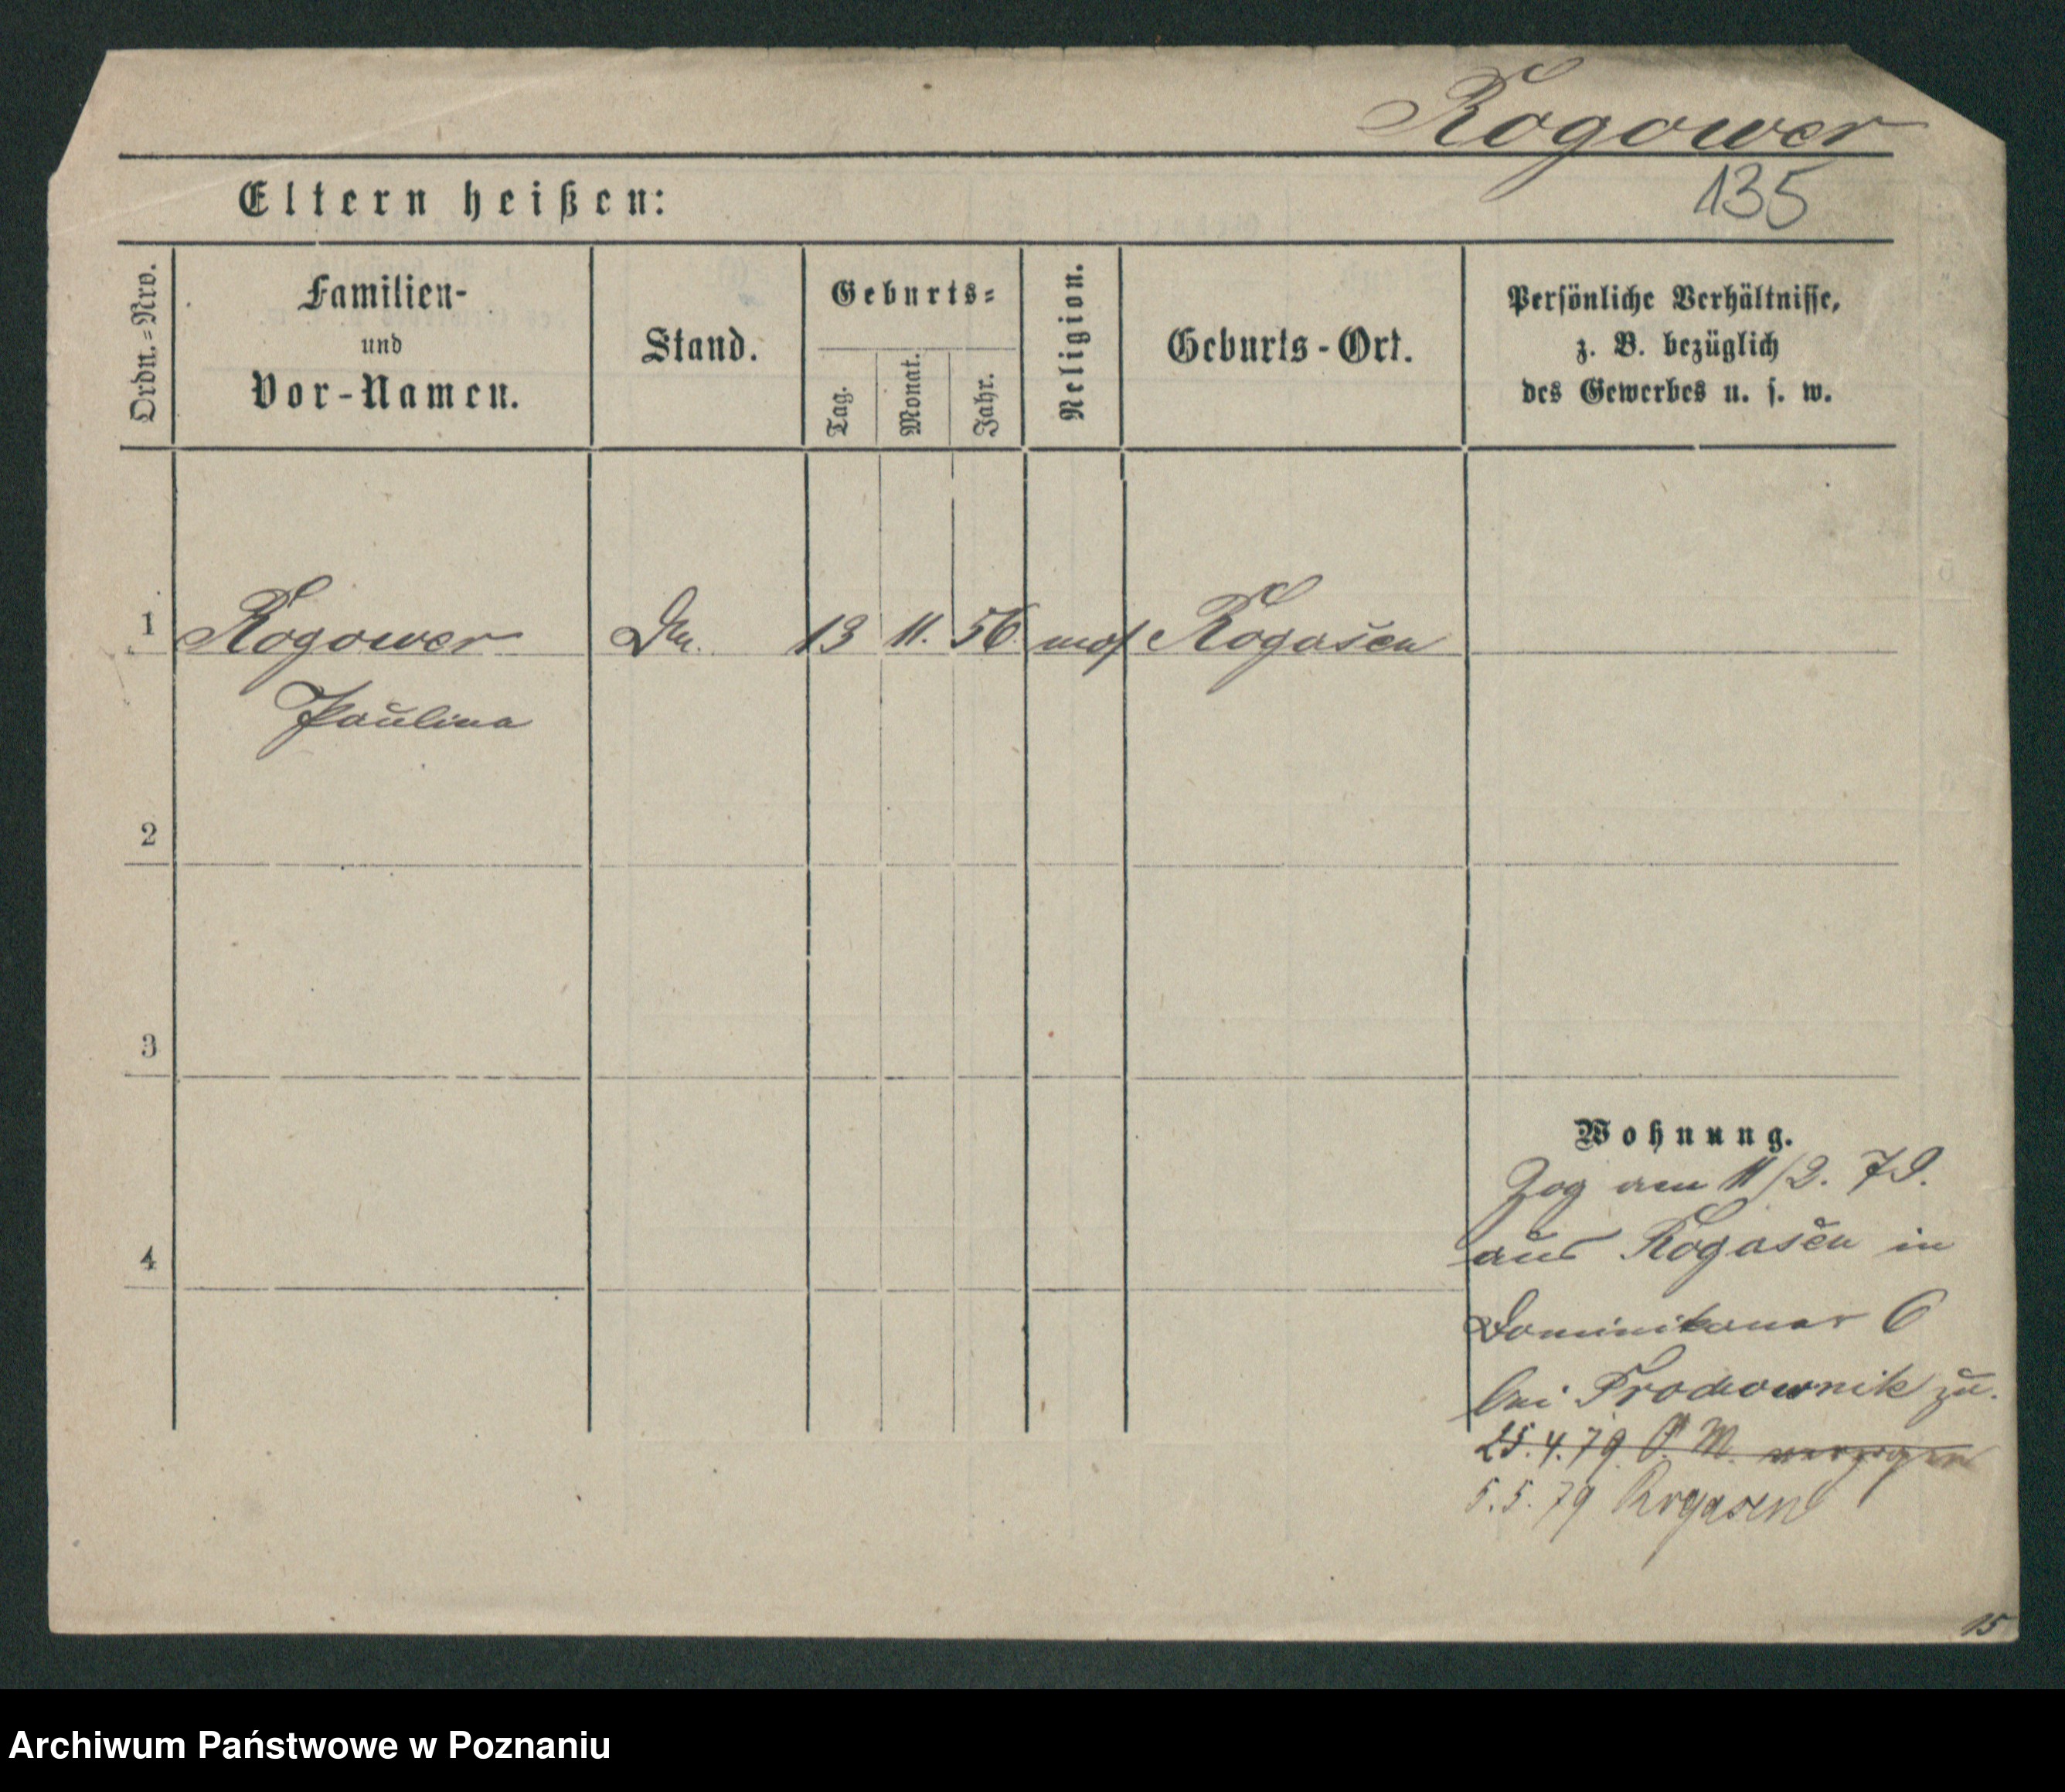 Rogower
135
Eltern heißen:
Ordn.=Nro.
Familien-
und
Vor-Namen.
Stand.
Geburts=
Tag.
Monat.
Jahr.
Religion.
Geburts-Ort.
Persönliche Verhältnisse,
z. B. bezüglich
des Gewerbes u. s. w.
1 Rogower 13 11. 56 mos Rogasen
Paulina
2
3
Wohnung.
Zog am 11/2. 79.
aus Rogasen in
4
Dominikaner 6
bei Prochownik zu.
25.4.79 P. M. verzogen
5.5.79 Rogasen
15
Archiwum Państwowe w Poznaniu